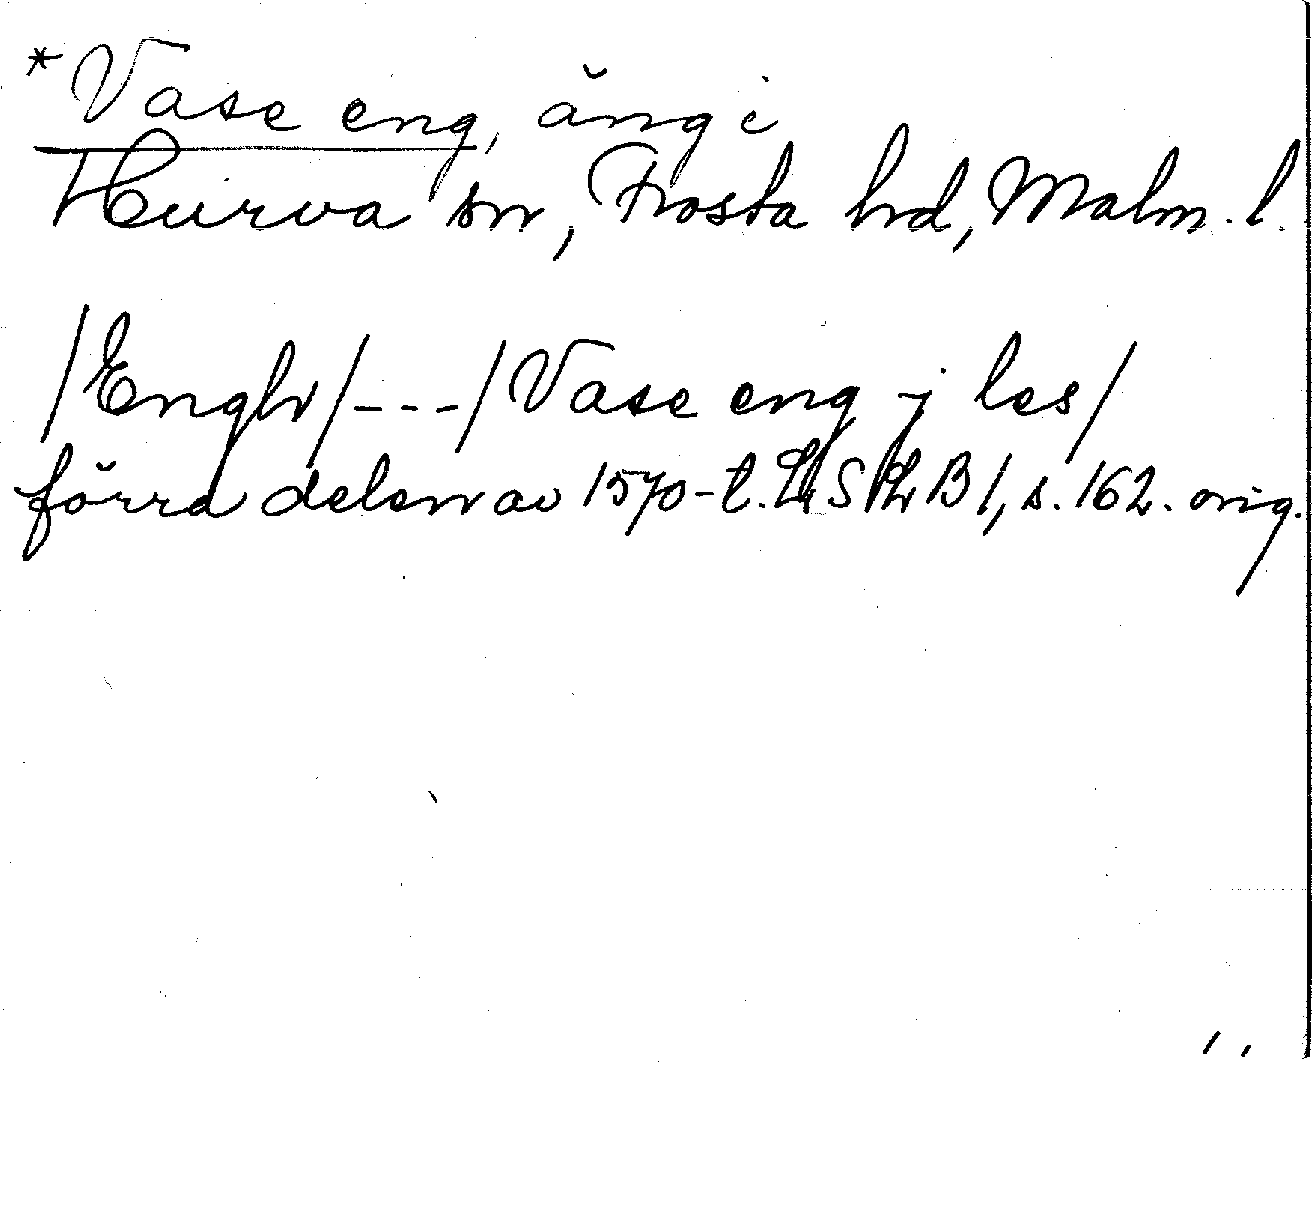 *Vase eng, äng i
Hurva sn, Frosta hd, Malm. l.
/Engh/---/Vase eng j les/
förra delen av 1570-t. B1, s. 162. orig.